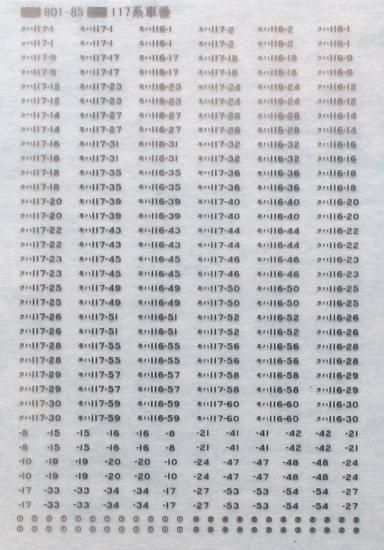 801-85 117系車番
クハ117-1 モハ117-1 モハ116-1 モハ117-2 モハ116-2 クハ116-1
クハ117-1 モハ117-1 モハ116-1 モハ117-2 モハ116-2 クハ116-1
クハ117-9 モハ117-17 モハ116-17 モハ117-18 モハ116-18 クハ116-9
クハ117-9 モハ117-17 モハ116-17 モハ117-18 モハ116-18 クハ116-9
クハ117-12 モハ117-23 モハ116-23 モハ117-24 モハ116-24 クハ116-12
クハ117-12 モハ117-23 モハ116-23 モハ117-24 モハ116-24 クハ116-12
クハ117-14 モハ117-27 モハ116-27 モハ117-28 モハ116-28 クハ116-14
クハ117-14 モハ117-27 モハ116-27 モハ117-28 モハ116-28 クハ116-14
クハ117-16 モハ117-31 モハ116-31 モハ117-32 モハ116-32 クハ116-16
クハ117-16 モハ117-31 モハ116-31 モハ117-32 モハ116-32 クハ116-16
クハ117-18 モハ117-35 モハ116-35 モハ117-36 モハ116-36 クハ116-18
クハ117-18 モハ117-35 モハ116-35 モハ117-36 モハ116-36 クハ116-18
クハ117-20 モハ117-39 モハ116-39 モハ117-40 モハ116-40 クハ116-20
クハ117-20 モハ117-39 モハ116-39 モハ117-40 モハ116-40 クハ116-20
クハ117-22 モハ117-43 モハ116-43 モハ117-44 モハ116-44 クハ116-22
クハ117-22 モハ117-43 モハ116-43 モハ117-44 モハ116-44 クハ116-22
クハ117-23 モハ117-45 モハ116-45 モハ117-46 モハ116-46 クハ116-23
クハ117-23 モハ117-45 モハ116-45 モハ117-46 モハ116-46 クハ116-23
クハ117-25 モハ117-49 モハ116-49 モハ117-50 モハ116-50 クハ116-25
クハ117-25 モハ117-49 モハ116-49 モハ117-50 モハ116-50 クハ116-25
クハ117-26 モハ117-51 モハ116-51 モハ117-52 モハ116-52 クハ116-26
クハ117-26 モハ117-51 モハ116-51 モハ117-52 モハ116-52 クハ116-26
クハ117-28 モハ117-55 モハ116-55 モハ117-56 モハ116-56 クハ116-28
クハ117-28 モハ117-55 モハ116-55 モハ117-56 モハ116-56 クハ116-28
クハ117-29 モハ117-57 モハ116-57 モハ117-58 モハ116-58 クハ116-29
クハ117-29 モハ117-57 モハ116-57 モハ117-58 モハ116-58 クハ116-29
クハ117-30 モハ117-59 モハ116-59 モハ117-60 モハ116-60 クハ116-30
クハ117-30 モハ117-59 モハ116-59 モハ117-60 モハ116-60 クハ116-30
-8 -15 -15 -16 -16 -8 -21 -41 -41 -42 -42 -21
-8 -15 -15 -16 -16 -8 -21 -41 -41 -42 -42 -21
-10 -19 -19 -20 -20 -10 -24 -47 -47 -48 -48 -24
-10 -19 -19 -20 -20 -10 -24 -47 -47 -48 -48 -24
-17 -33 -33 -34 -34 -17 -27 -53 -53 -54 -54 -27
-17 -33 -33 -34 -34 -17 -27 -53 -53 -54 -54 -27